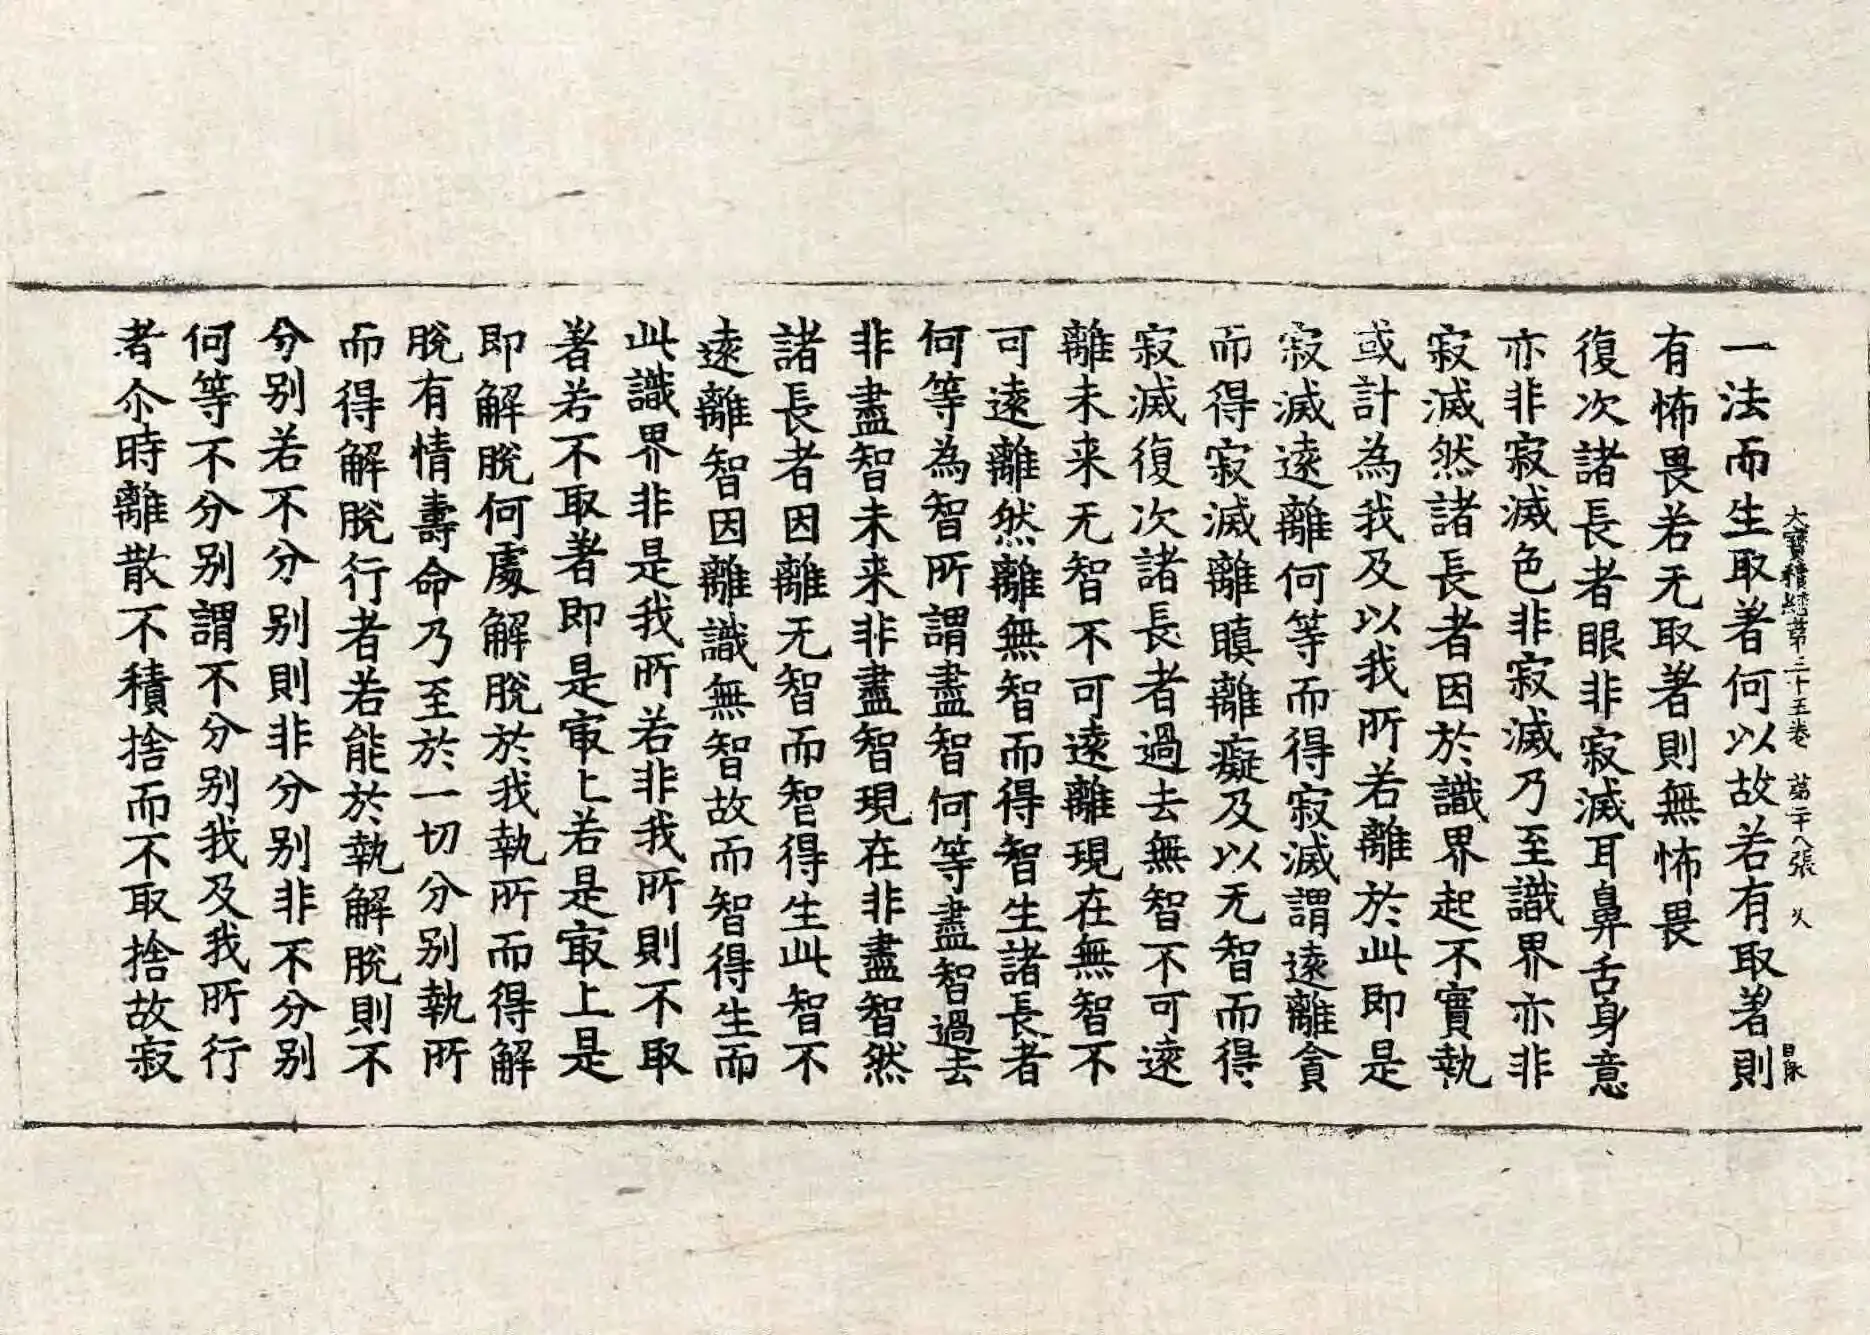 一法而生取著何以故若有取著則
大寶積經第三十五卷 第二十八張 乆
有怖畏若无取著則無怖畏
復次諸長者眼非寂滅耳鼻舌身意
亦非寂滅色非寂滅乃至識界亦非
寂滅然諸長者因於識界起不實執
或計為我及以我所若離於此即是
寂滅遠離何等而得寂滅謂遠離貪
而得寂滅離瞋離癡及以无智而得
寂滅復次諸長者過去無智不可遠
離未来无智不可遠離現在無智不
可遠離然離無智而得智生諸長者
何等為智所謂盡智何等盡智過去
非盡智未来非盡智現在非盡智然
諸長者因離无智而智得生此智不
遠離智因離識無智故而智得生而
此識界非是我所若非我所則不取
著若不取著即是㝡上若是㝡上是
即解脫何處解脫於我執所而得解
脫有情壽命乃至於一切分别執所
而得解脫行者若能於執解脫則不
分别若不分别則非分别非不分别
何等不分别謂不分别我及我所行
者尒時離散不積捨而不取捨故寂